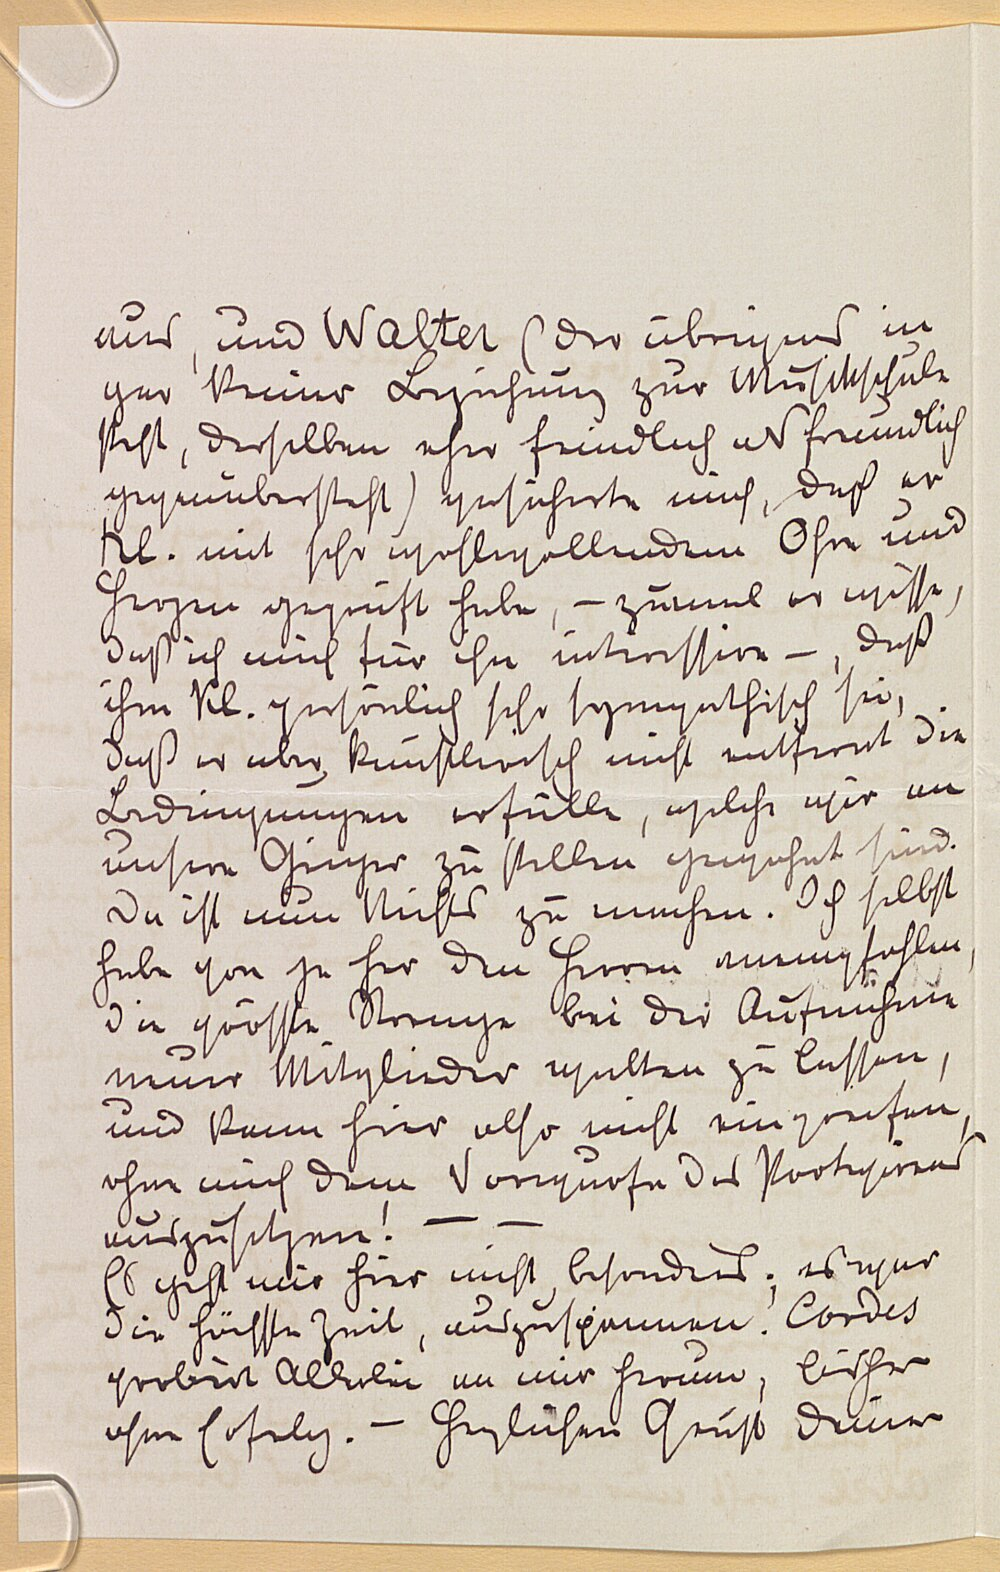 aus, und Walter (der übrigens in
gar keiner Beziehung zur Musikschule
steht, derselben eher feindlich als freundlich
gegenübersteht) versicherte mich, daß er
Kl. mit sehr wohlwollendem Ohre und
Herzen geprüft habe, – zumal er wisse,
daß ich mich für ihn interessire –, daß
ihm Kl. persönlich sehr sympathisch sei,
daß er aber künstlerisch nicht entfernt die
Bedingungen erfülle, welche wir an
unsere Geiger zu stellen gewohnt sind.
Da ist nun Nichts zu machen. Ich selbst
habe von je her den Herren anempfohlen,
die größte Strenge bei der Aufnahme
neuer Mitglieder walten zu lassen,
und kann hier also nicht eingreifen,
ohne mich dem Vorwurfe des Protegirens
auszusetzen! — —
Es geht mir hier nicht besonders; es war
die höchste Zeit, auszuspannen! Cordes
probirt Allerlei an mir herum, bisher
ohne Erfolg. – Herzlichen Gruß Deiner